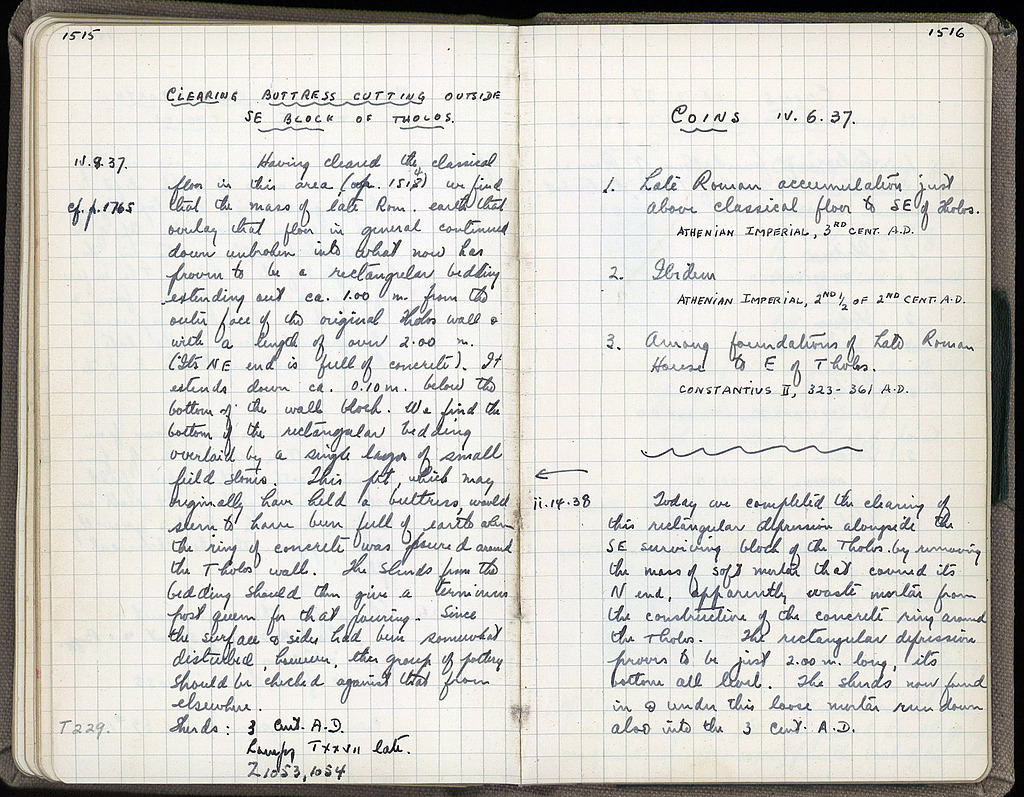 1515
CLEARING BUTTRESS CUTTING OUTSIDE
SE BLOCK OF THOLOS.
IV.8.37.
Having cleared the classical
floor in this area (cf. p. 1513) we find
cf. p. 1765
that the mass of late Rom. earth that
overlay that floor in general continued
down unbroken into what now has
proven to be a rectangular bedding
extending out ca. 1.00 m. from the
outer face of the original Tholos wall &
with a length of over 2.00 m.
(Its NE end is full of concrete). It
extends down ca. 0.10 m. below the
bottom of the wall block. We find the
bottom of the rectangular bedding
overlaid by a single layer of small
field stones. This pit, which may
originally have held a buttress, would
seem to have been full of earth when
the ring of concrete was poured around
the Tholos wall. The sherds from the
bedding should then give a terminus
post quem for that pouring. Since
the surface & sides had been somewhat
disturbed, however, this group of pottery
should be checked against that from
elsewhere.
T 229.
Sherds: 3 cent. A.D.
Lamps T XXVII late.
Z 1053, 1054
1516
COINS IV. 6. 37.
1. Late Roman accumulation just
above classical floor to SE of Tholos.
ATHENIAN IMPERIAL, 3RD CENT. A.D.
2. Ibidem
ATHENIAN IMPERIAL, 2ND 1/2 OF 2ND CENT. A.D.
3. Among foundations of Late Roman
House to E of Tholos.
CONSTANTIUS II, 323-361 A.D.
ii.14.38
Today we completed the clearing of
this rectangular depression alongside the
SE surviving block of the Tholos by removing
the mass of soft mortar that covered its
N end, apparently waste mortar from
the construction of the concrete ring around
the Tholos. The rectangular depression
proves to be just 2.00 m. long, its
bottom all level. The sherds now found
in & under this loose mortar run down
also into the 3 cent. A.D.